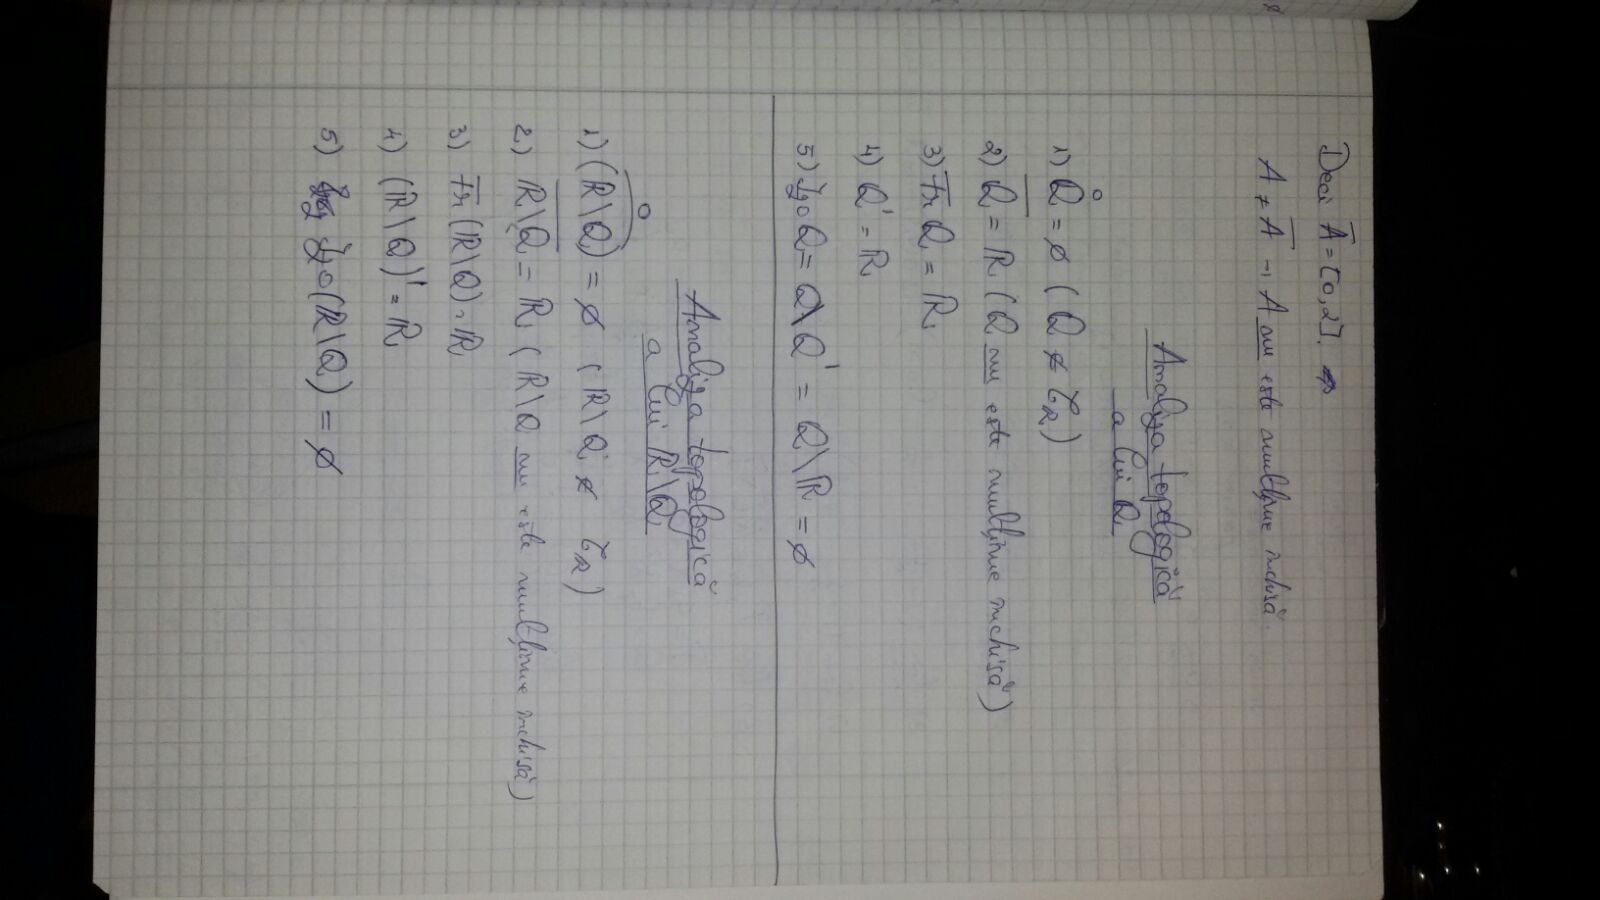 Deci A̅ = [0,2].
A ≠ A̅ → A nu este mulțime închisă.
Analiza topologică
a lui Q
1) Q̊ = ∅ ( Q ∉ τ_R )
2) Q̅ = ℝ ( Q nu este mulțime închisă )
3) Fr Q = ℝ
4) Q' = ℝ
5) Izo Q = Q \ Q' = Q \ ℝ = ∅
Analiza topologică
a lui ℝ\Q
1) (ℝ\Q)° = ∅ ( ℝ\Q ∉ τ_R )
2) ℝ\Q̅ = ℝ ( ℝ\Q nu este mulțime închisă )
3) Fr (ℝ\Q) = ℝ
4) (ℝ\Q)' = ℝ
5) Izo (ℝ\Q) = ∅